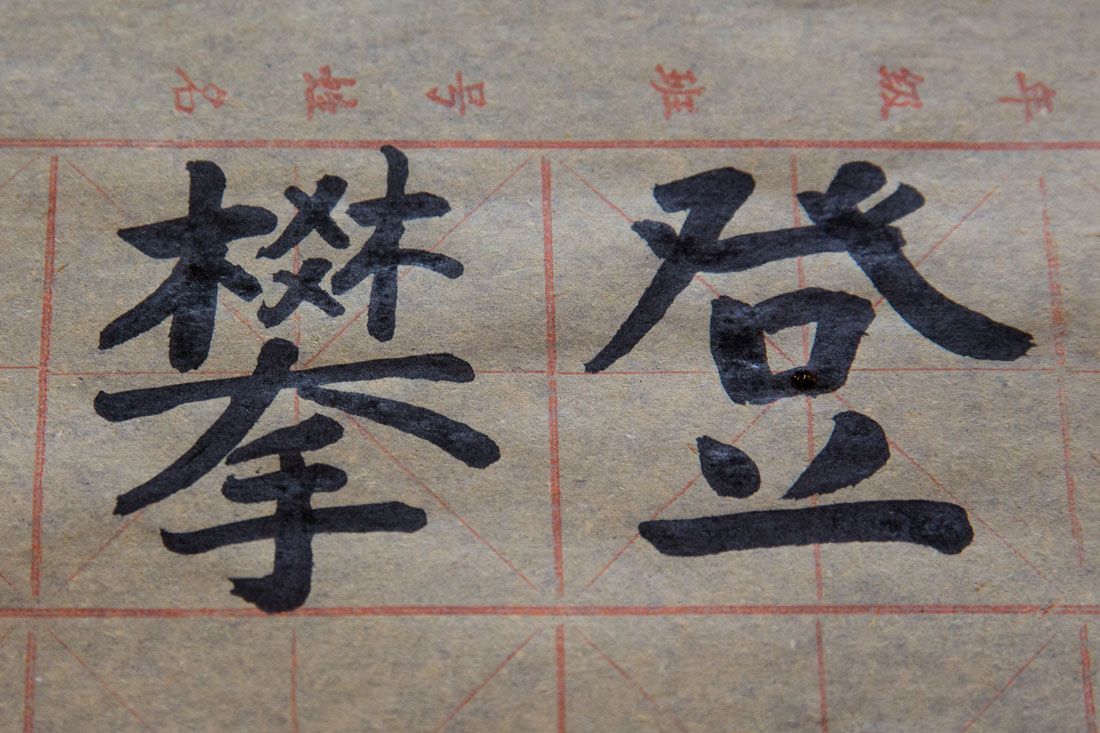 年级 班 号 姓名
登攀